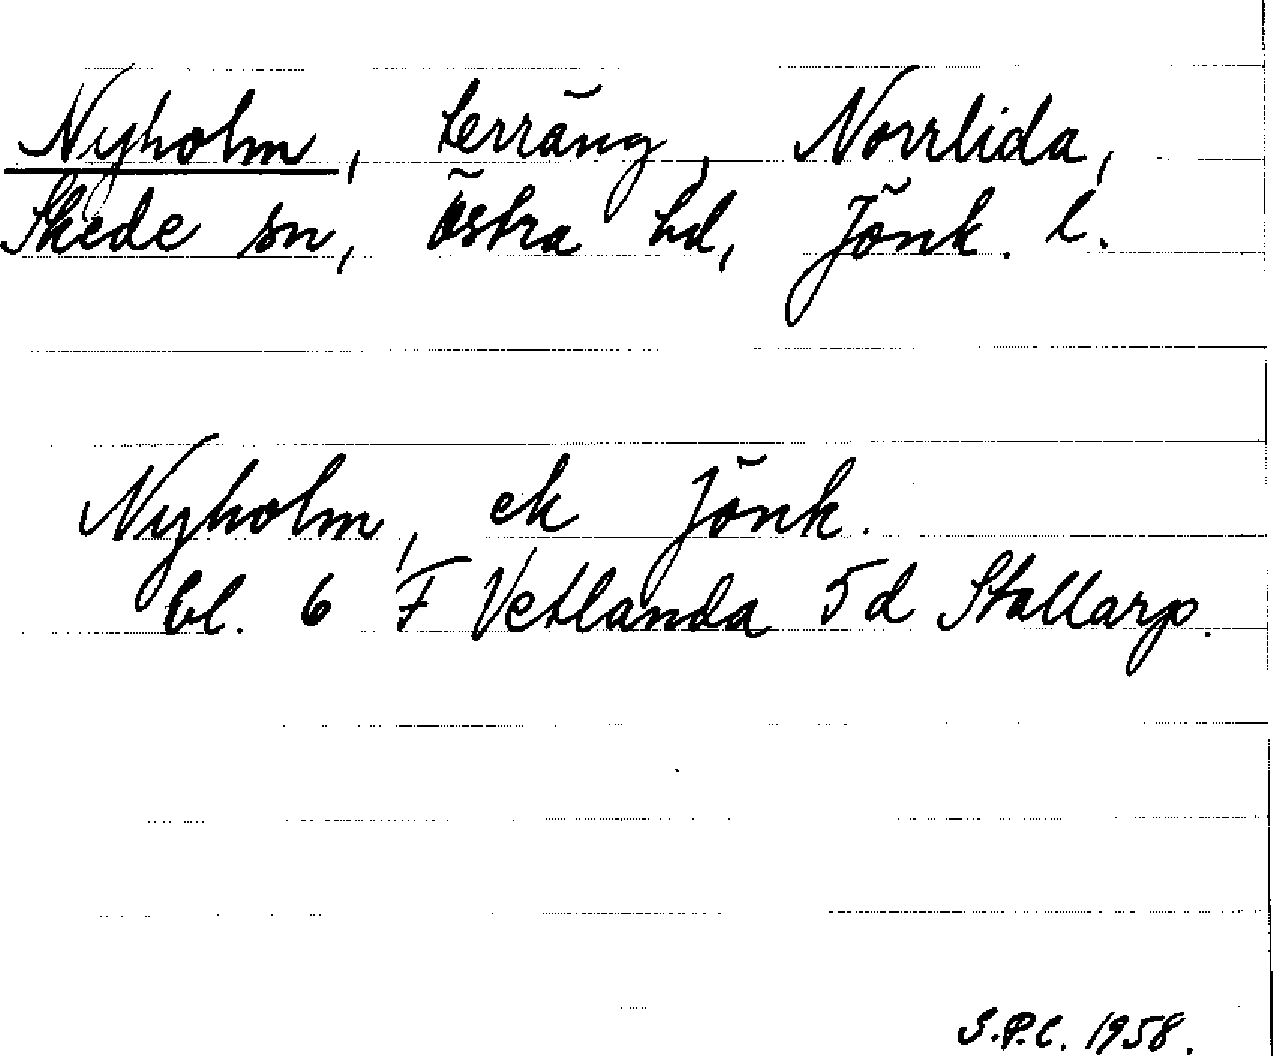 Nyholm, terräng, Norrlida,
Skede sn, Östra hd, Jönk. l.
Nyholm, ek Jönk.
bl. 6 F Vetlanda 5 d Stallarp.
S.P.C. 1958.